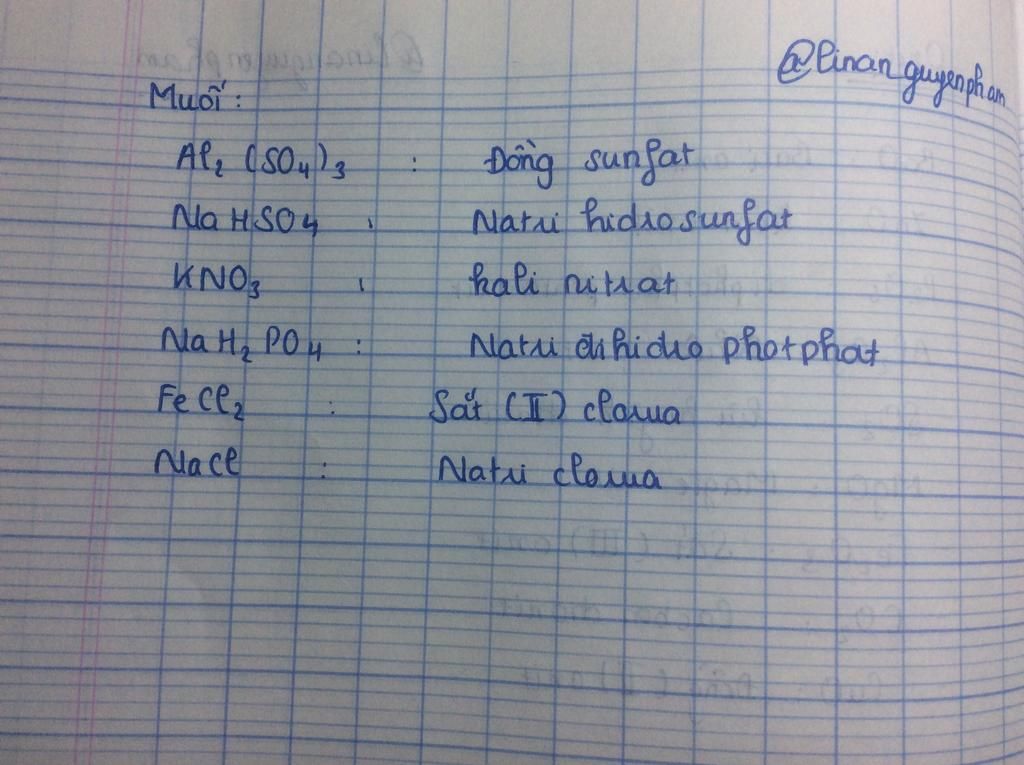 @linanguyenpham
Muối:
Al₂(SO₄)₃ : Đồng sunfat
NaHSO₄ : Natri hidrosunfat
KNO₃ : kali nitrat
NaH₂PO₄ : Natri đihidro photphat
FeCl₂ : Sắt (II) clorua
NaCl : Natri clorua